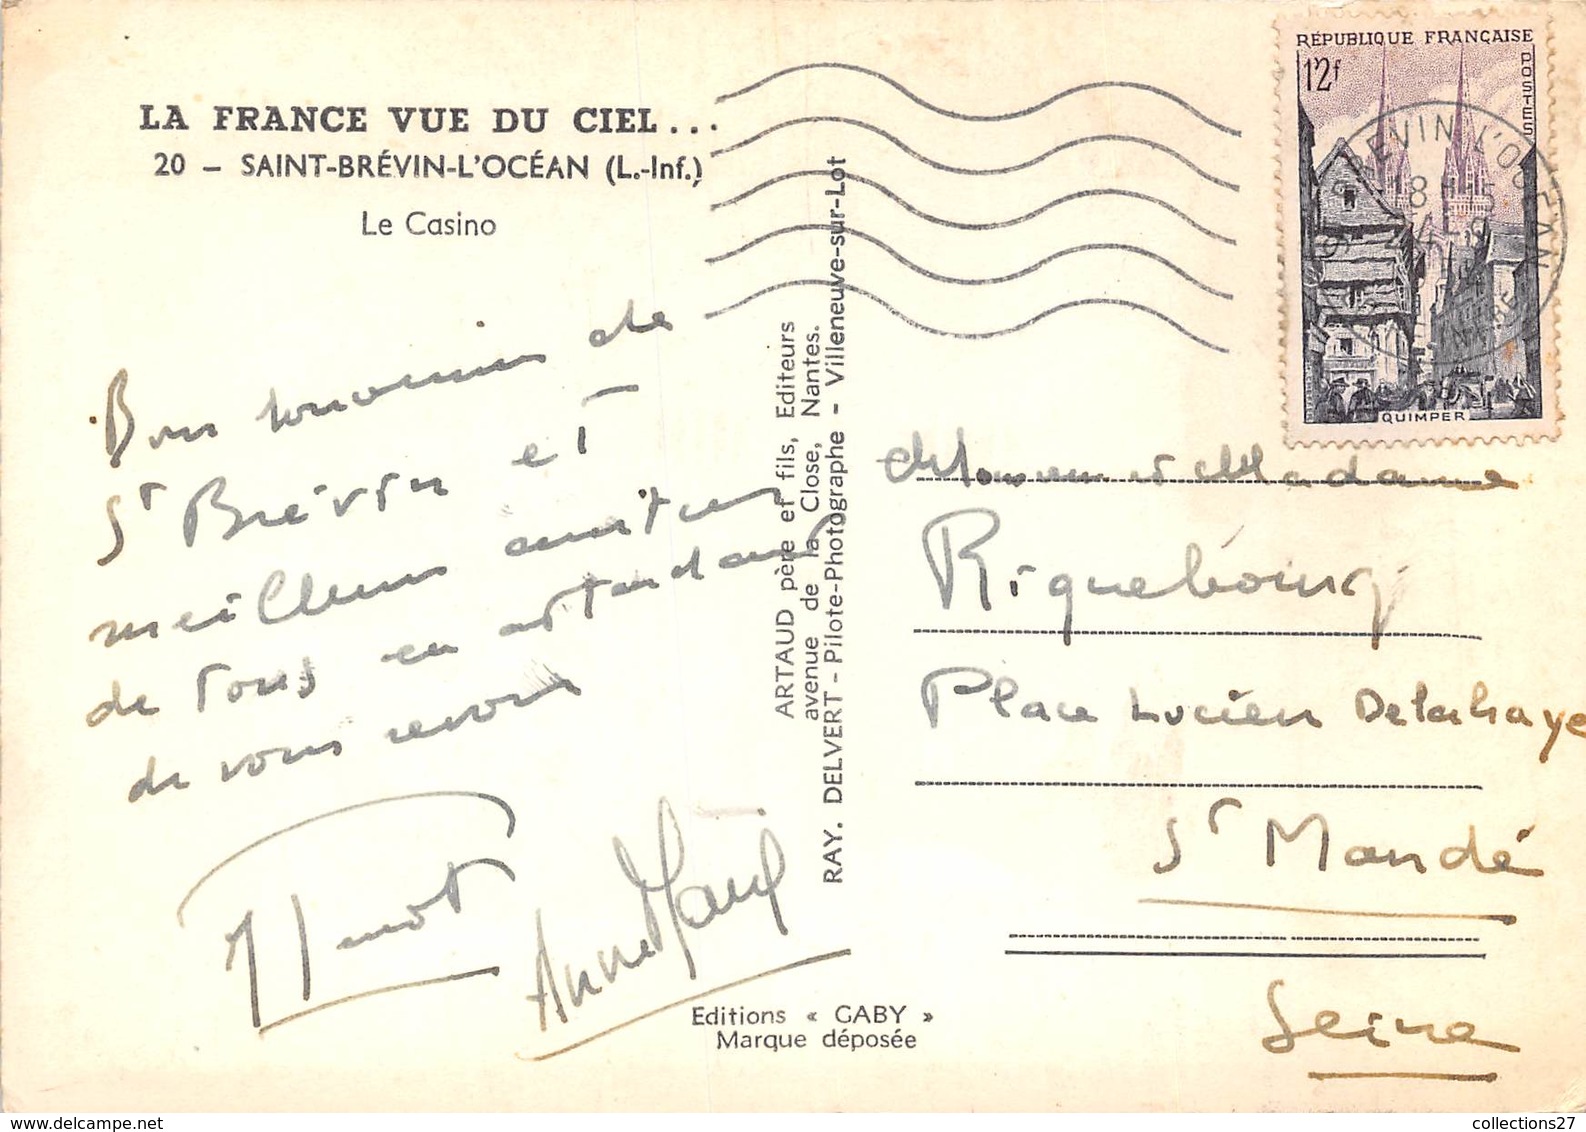 LA FRANCE VUE DU CIEL...
20 – SAINT-BRÉVIN-L'OCÉAN (L.-Inf.)
Le Casino
Bons souvenirs de
St Brévin et
meilleures amitiés
de tous en attendant
de vous revoir
Anne Marie
ARTAUD père et fils, Editeurs
avenue de la Close, Nantes.
RAY. DELVERT - Pilote-Photographe - Villeneuve-sur-Lot
Editions « GABY »
Marque déposée
RÉPUBLIQUE FRANÇAISE
12f
POSTES
QUIMPER
BREVIN L'OCEAN
18 H 15
Monsieur et Madame
Riquebourg
Place Lucien Delahaye
St Mandé
Seine
collections27